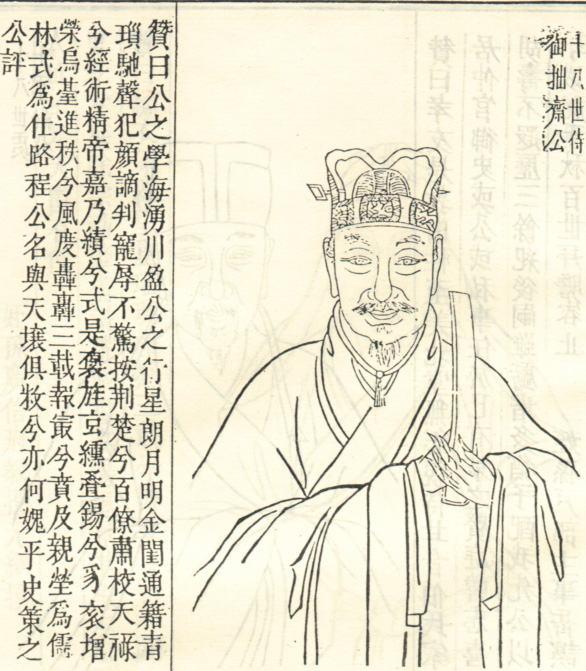 十八世侍
御拙齋公
贊曰公之學海湧川盈公之行星朗月明金閨通籍青
瑣馳聲犯顏謫判寵辱不驚按荆楚兮百僚蕭校天祿
兮經術精帝嘉乃績兮式是褒旌玄纁叠錫兮豸衮增
榮烏臺進秩兮風度轟轟三載報㝡兮賁及親塋爲儒
林式爲仕路程公名與天壤俱敝兮亦何媿乎史策之
公評